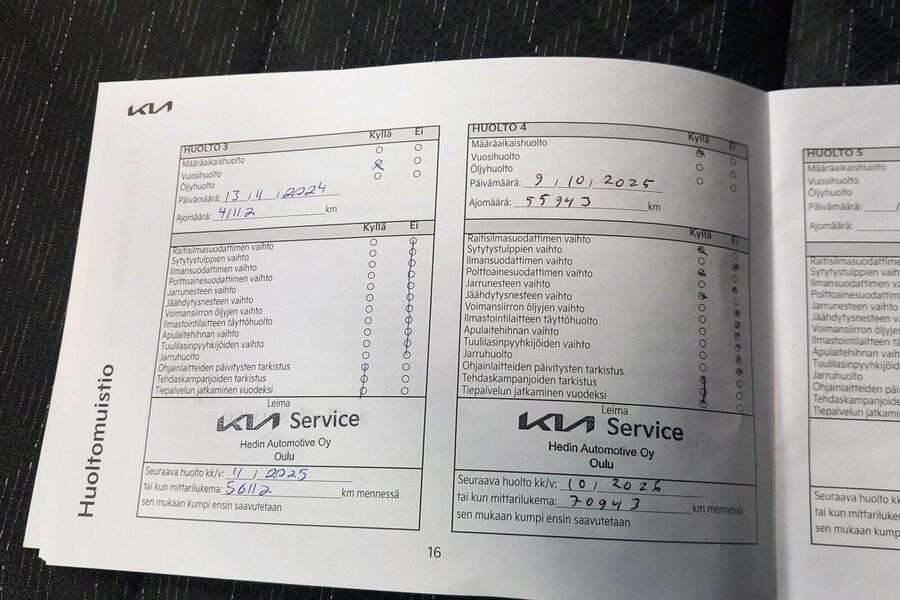 KIA
Huoltomuistio
HUOLTO 3
Kyllä Ei
Määräaikaishuolto
Vuosihuolto
Öljyhuolto
Päivämäärä: 13 / 11 / 2024
Ajomäärä: 41112 km
Kyllä Ei
Raitisilmasuodattimen vaihto
Sytytystulppien vaihto
Ilmansuodattimen vaihto
Polttoainesuodattimen vaihto
Jarrunesteen vaihto
Jäähdytysnesteen vaihto
Voimansiirron öljyjen vaihto
Ilmastointilaitteen täyttöhuolto
Apulaitehihnan vaihto
Tuulilasinpyyhkijöiden vaihto
Jarruhuolto
Ohjainlaitteiden päivitysten tarkistus
Tehdaskampanjoiden tarkistus
Tiepalvelun jatkaminen vuodeksi
Leima
KIA Service
Hedin Automotive Oy
Oulu
Seuraava huolto kk/v: 11 / 2025
tai kun mittarilukema: 56112 km mennessä
sen mukaan kumpi ensin saavutetaan
HUOLTO 4
Kyllä Ei
Määräaikaishuolto
Vuosihuolto
Öljyhuolto
Päivämäärä: 9 / 10 / 2025
Ajomäärä: 55943 km
Kyllä Ei
Raitisilmasuodattimen vaihto
Sytytystulppien vaihto
Ilmansuodattimen vaihto
Polttoainesuodattimen vaihto
Jarrunesteen vaihto
Jäähdytysnesteen vaihto
Voimansiirron öljyjen vaihto
Ilmastointilaitteen täyttöhuolto
Apulaitehihnan vaihto
Tuulilasinpyyhkijöiden vaihto
Jarruhuolto
Ohjainlaitteiden päivitysten tarkistus
Tehdaskampanjoiden tarkistus
Tiepalvelun jatkaminen vuodeksi
Leima
KIA Service
Hedin Automotive Oy
Oulu
Seuraava huolto kk/v: 10 / 2026
tai kun mittarilukema: 70943 km mennessä
sen mukaan kumpi ensin saavutetaan
16
HUOLTO 5
Määräaikaishuolto
Vuosihuolto
Öljyhuolto
Päivämäärä: /
Ajomäärä:
Raitisilmasuodattime
Sytytystulppien vaiht
Ilmansuodattimen va
Polttoainesuodattime
Jarrunesteen vaihto
Jäähdytysnesteen vai
Voimansiirron öljyjen
Ilmastointilaitteen tä
Apulaitehihnan vaiht
Tuulilasinpyyhkijöide
Jarruhuolto
Ohjainlaitteiden päivi
Tehdaskampanjoiden
Tiepalvelun jatkamin
Seuraava huolto kk/
tai kun mittarilukem
sen mukaan kumpi en